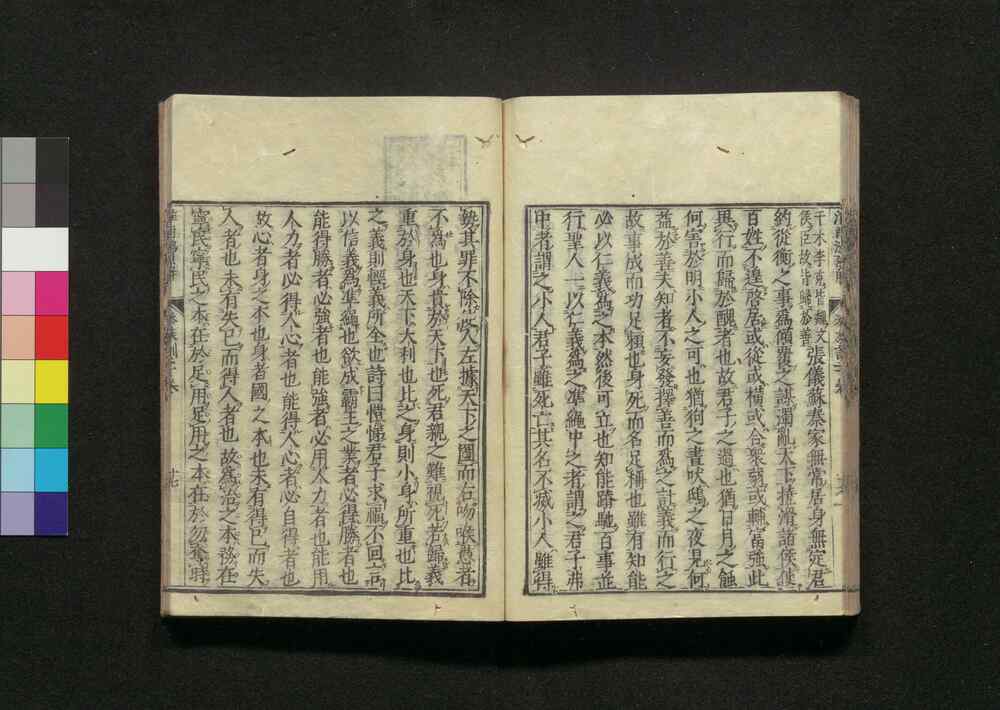 干木李克皆魏文
侯臣故皆歸於善
張儀蘇秦家無常居身無定君
約從衡之事爲傾覆之謀濁亂天下撓滑諸侯使
百姓不遑啓居或從或橫或合衆弱或輔富強此
異行而歸於醜者也故君子之過也猶日月之蝕
何害於明小人之可也猶狗之晝吠鴟之夜見何
益於善夫知者不妄發擇善而爲之計義而行之
故事成而功足賴也身死而名足稱也雖有知能
必以仁義爲之本然後可立也知能蹐馳百事並
行聖人一以仁義爲之準繩中之者謂之君子弗
中者謂之小人君子雖死亡其名不滅小人雖得
勢其罪不除使人左據天下之圖而右吻喉愚者
不爲也身貴於天下也死君親之難視死若歸義
重於身也天下大利也比之身則小身所重也比
之義則輕義所全也詩曰愷悌君子求福不回言
以信義爲準繩也欲成霸王之業者必得勝者也
能得勝者必強者也能強者必用人力者也能用
人力者必得人心者也能得人心者必自得者也
故心者身之本也身者國之本也未有得已而失
人者也未有失已而得人者也故爲治之本務在
寧民寧民之本在於足用足用之本在於勿奪時
十七